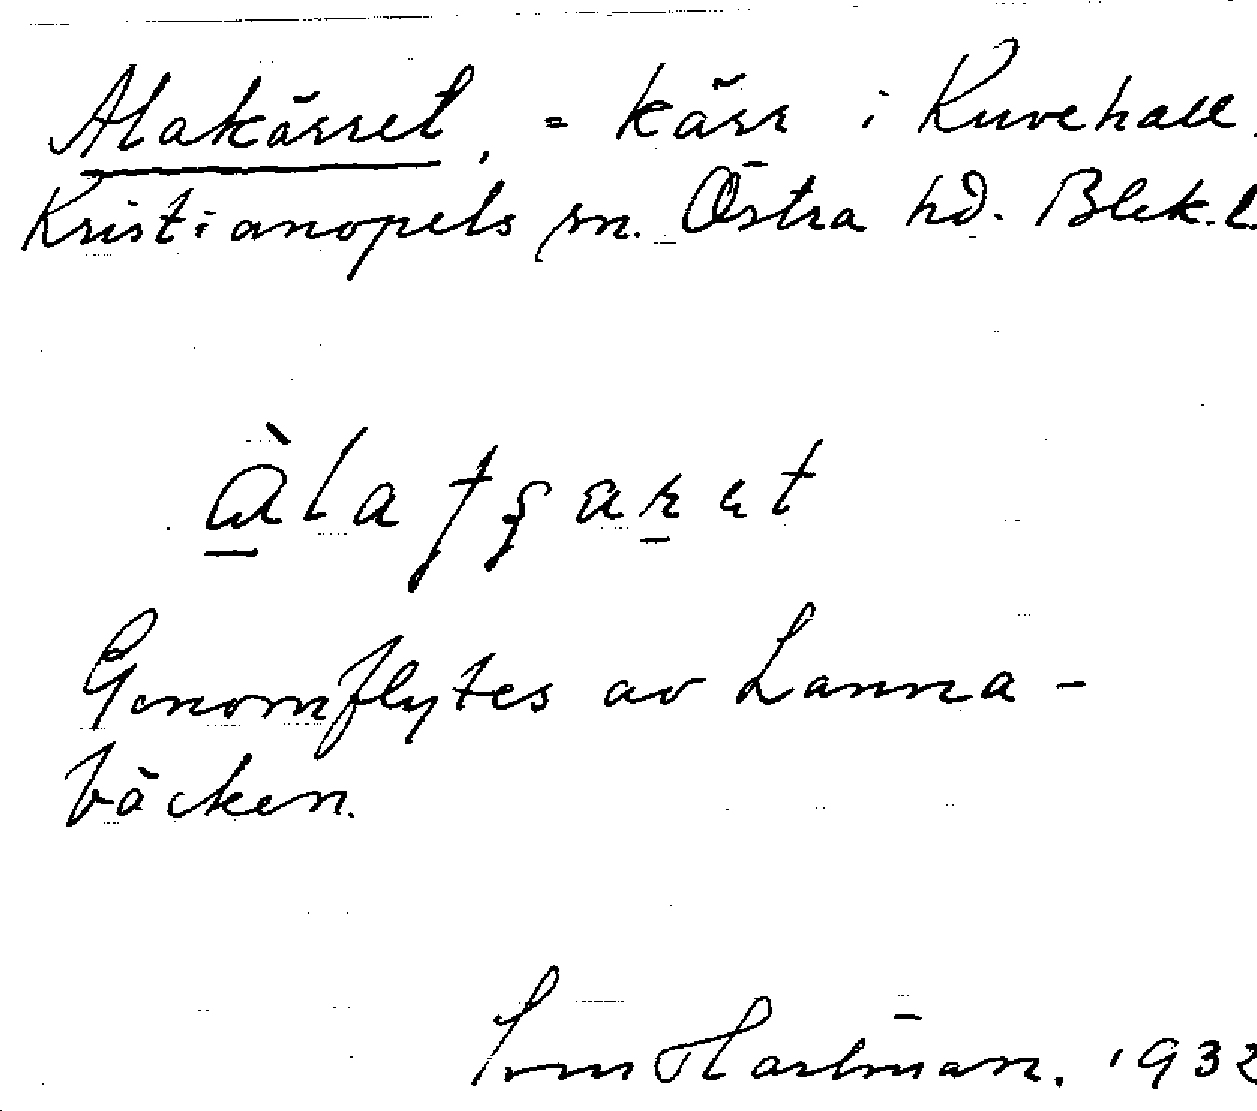 Alakärret, = kärr i Kuvehall.
Kristianopels sn. Östra hd. Blek.l.
àlatʃaret
Genomflytes av Lanna-
bäcken.
Sven Hartman. 1932